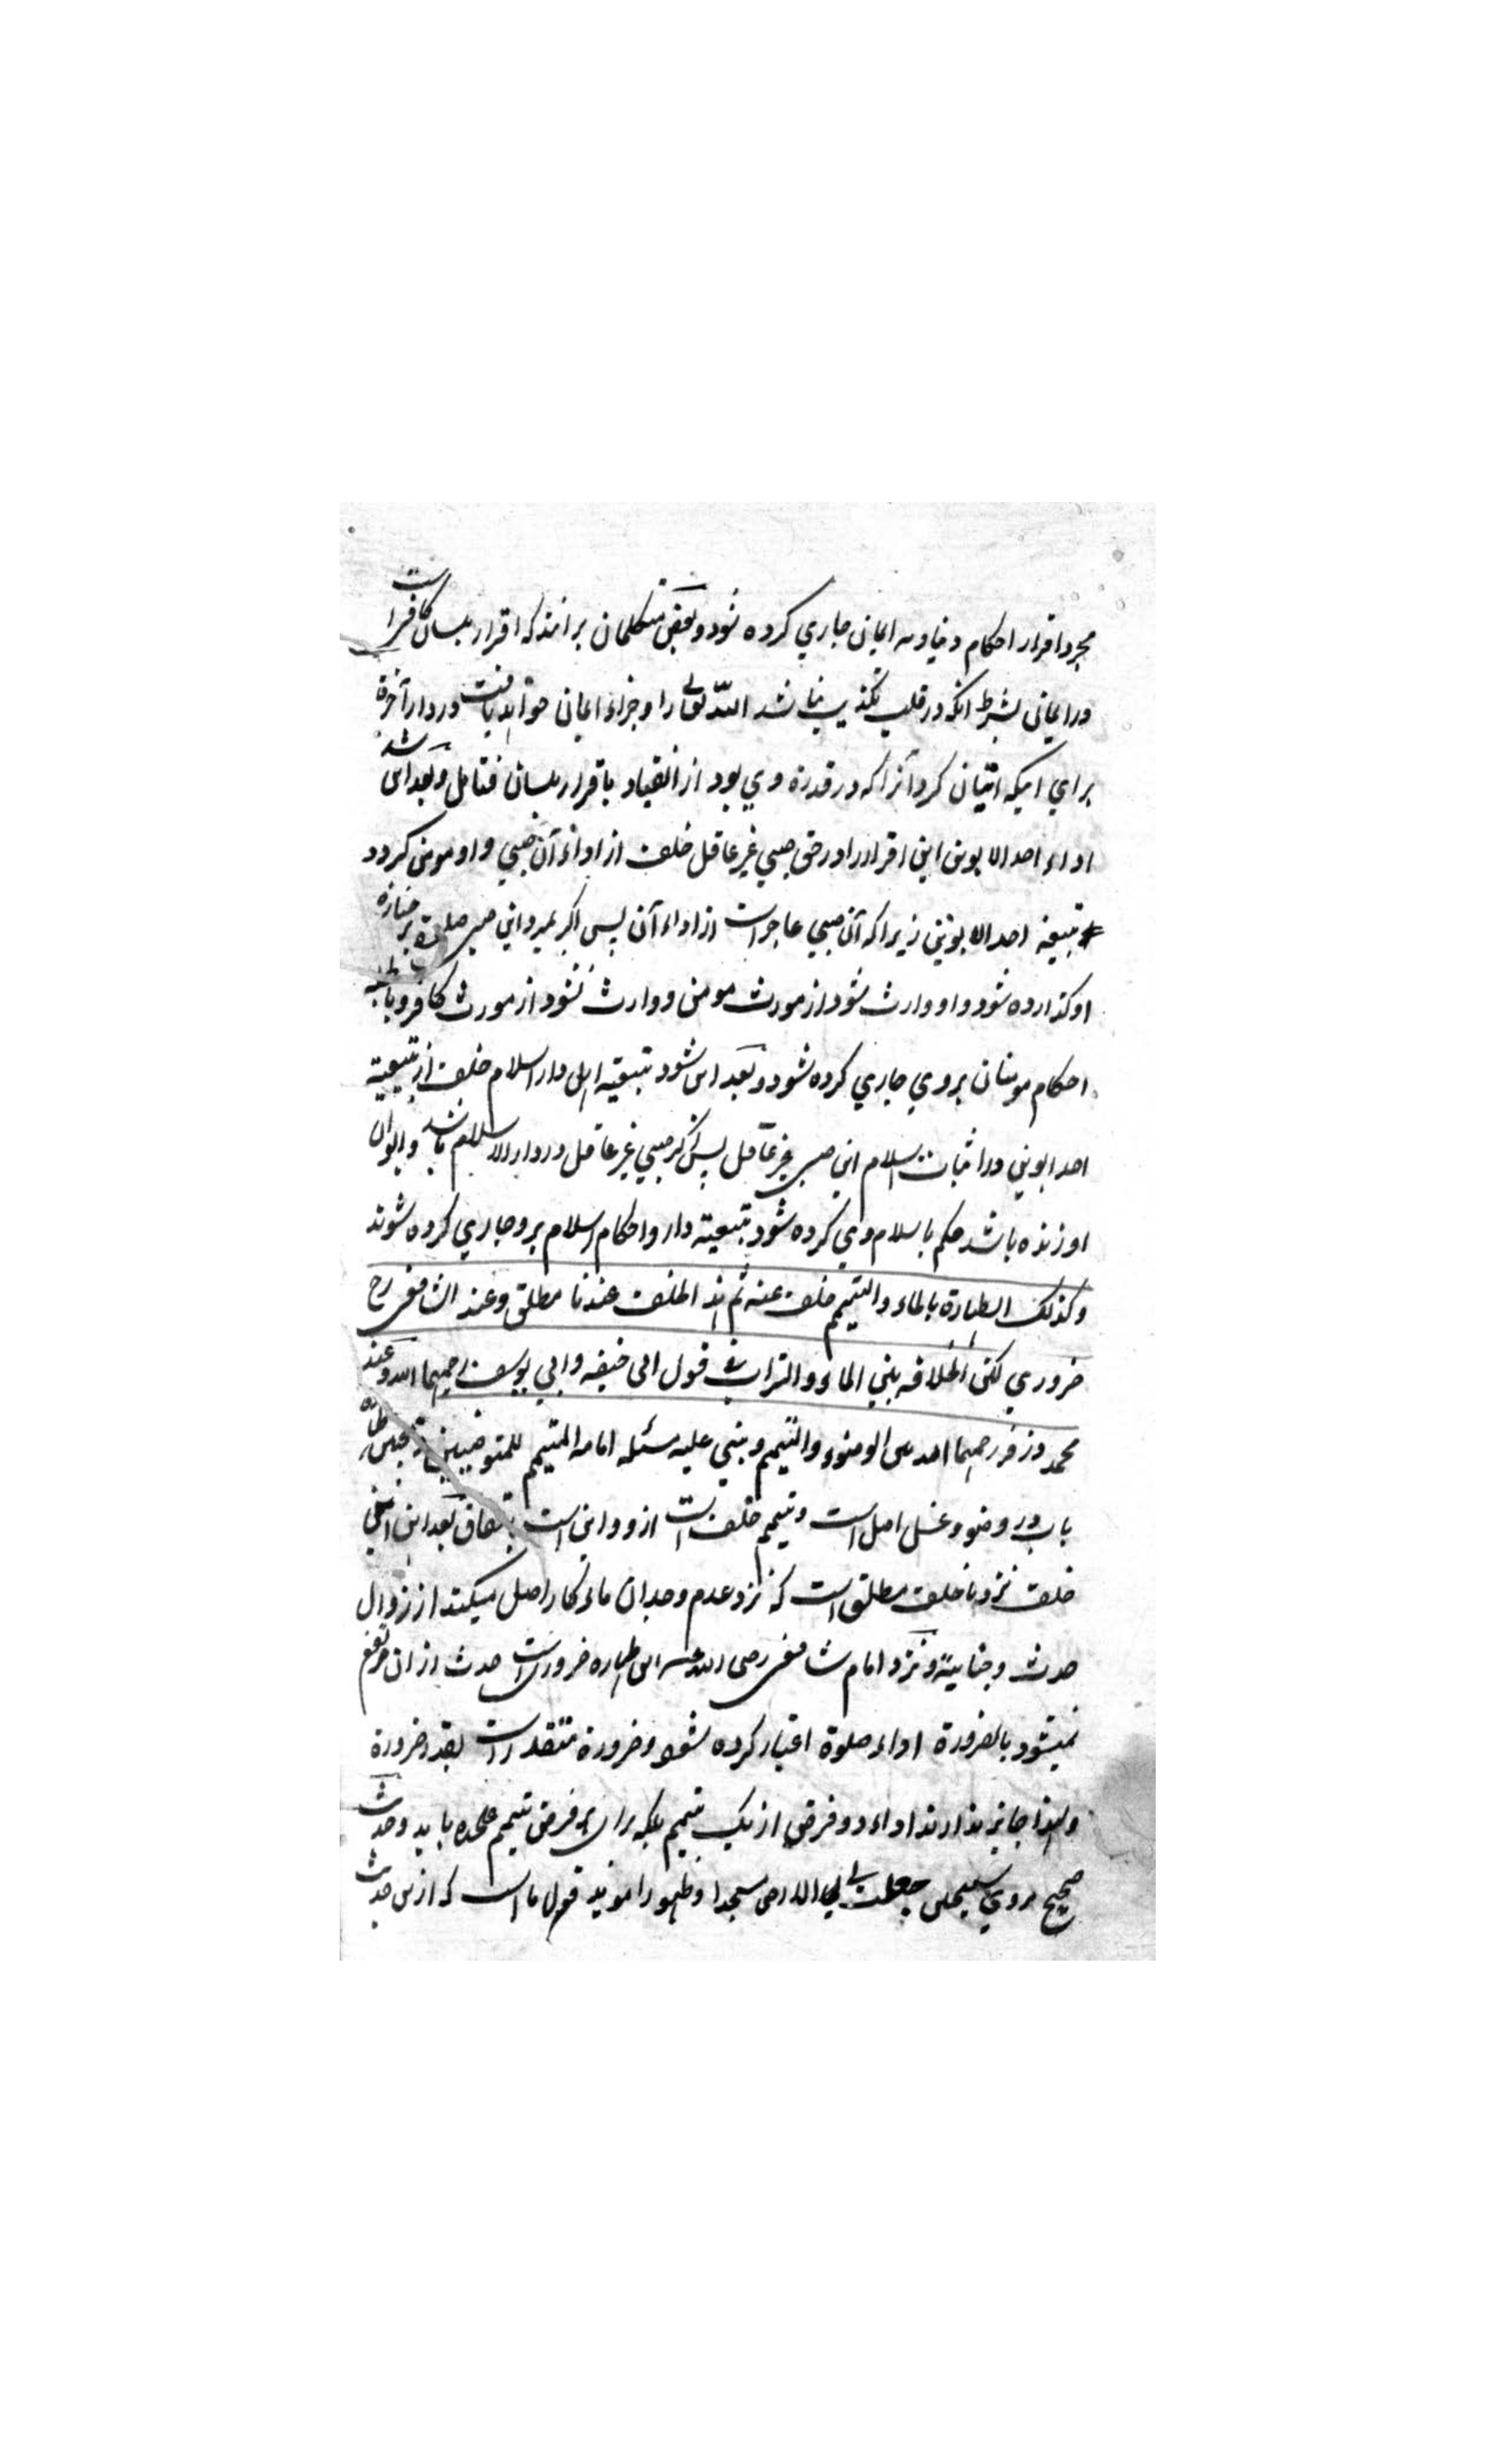 مجرد اقرار احکام دنیاویه ایمان جاري کرده شود و بعض متکلمان برانند که اقرار بلسان کافر است
در ایمان بشرط انکه در قلب تکذیب نباشد الله تعالی را و جزاء ایمان خواهد یافت در دار آخرة
براي اینکه اتیان کرد آنرا که در قدرة وي بود از انقیاد باقرار بلسان فتامل و بعد اس شد
اداء احد الابوین این اقرار را در حق صبي غیر عاقل خلف از اداء آن صبي و او مومن کردد
بتبعیة احد الابوین زیرا که آن صبي عاجز است از اداء آن پس اکر بمیرد این صبي صلوة بر جنازه
او کذارده شود و او وارث شود از مورث مومن و وارث نشود از مورث کافر و بالجمله
احکام مومنان بروي جاري کرده شود و بعد اس شود تبعیة اهل دار اسلام خلف از تبعیة
احد ابوین در اثبات اسلام این صبي غیر عاقل پس اکر صبي غیر عاقل در دار الاسلام باشد و ابوان
او زنده باشد حکم باسلام وي کرده شود بتبعیة دار و احکام اسلام برو جاري کرده شوند
وکذلک الطهارة بالماء والتیمم خلف عنه ثم هذا الخلف عندنا مطلق وعند الشافعی رح
ضروري لکن الخلافه بین الماء والتراب في قول ابی حنیفه وابي یوسف رحمهما الله وعند
محمد وزفر رحمهما الله بین الوضوء والتیمم ویبتني علیه مسئله امامه المتیمم للمتوضیین و همچنین طهاره
باب در وضو و غسل اصل است و تیمم خلف است ازو و این است باتفاق بعد این این
خلف نزد ما خلف مطلق است که نزد عدم وجدان ماء کار اصل میکند از زوال
حدث و جنابة و نزد امام شافعی رضی الله عنه این طهاره ضروری است حدث ازان مرتفع
نمیشود بالضرورة اداء صلوة اعتبار کرده شود و ضرورة متقدر است بقدر ضرورة
و لهذا جایز ندارند اداء دو فرض از یک تیمم بلکه برای هر فرض تیمم علحده باید و حدیث
صحیح مروي جعلت لي الارض مسجدا و طهورا موید قول ما است که ازین حدیث